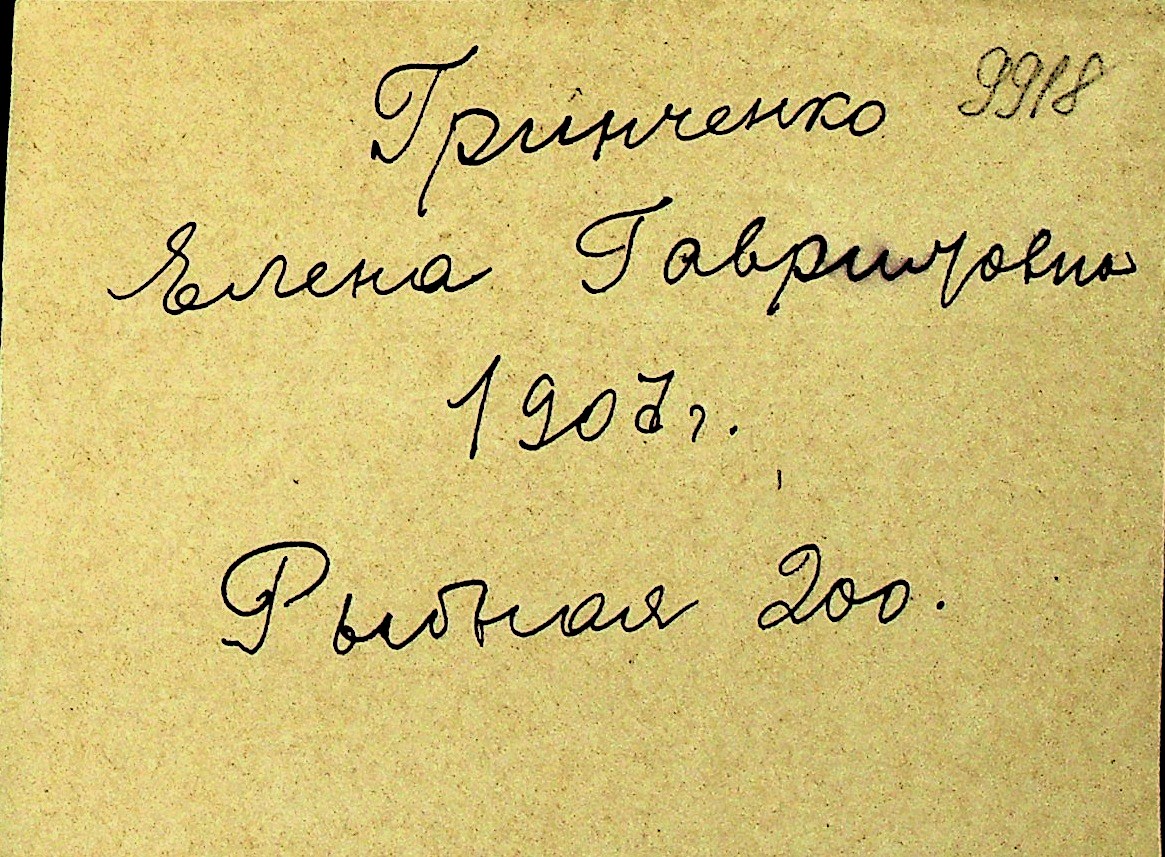 Гринченко 9918
Елена Гавриловна
1907г.
Рыбная 200.